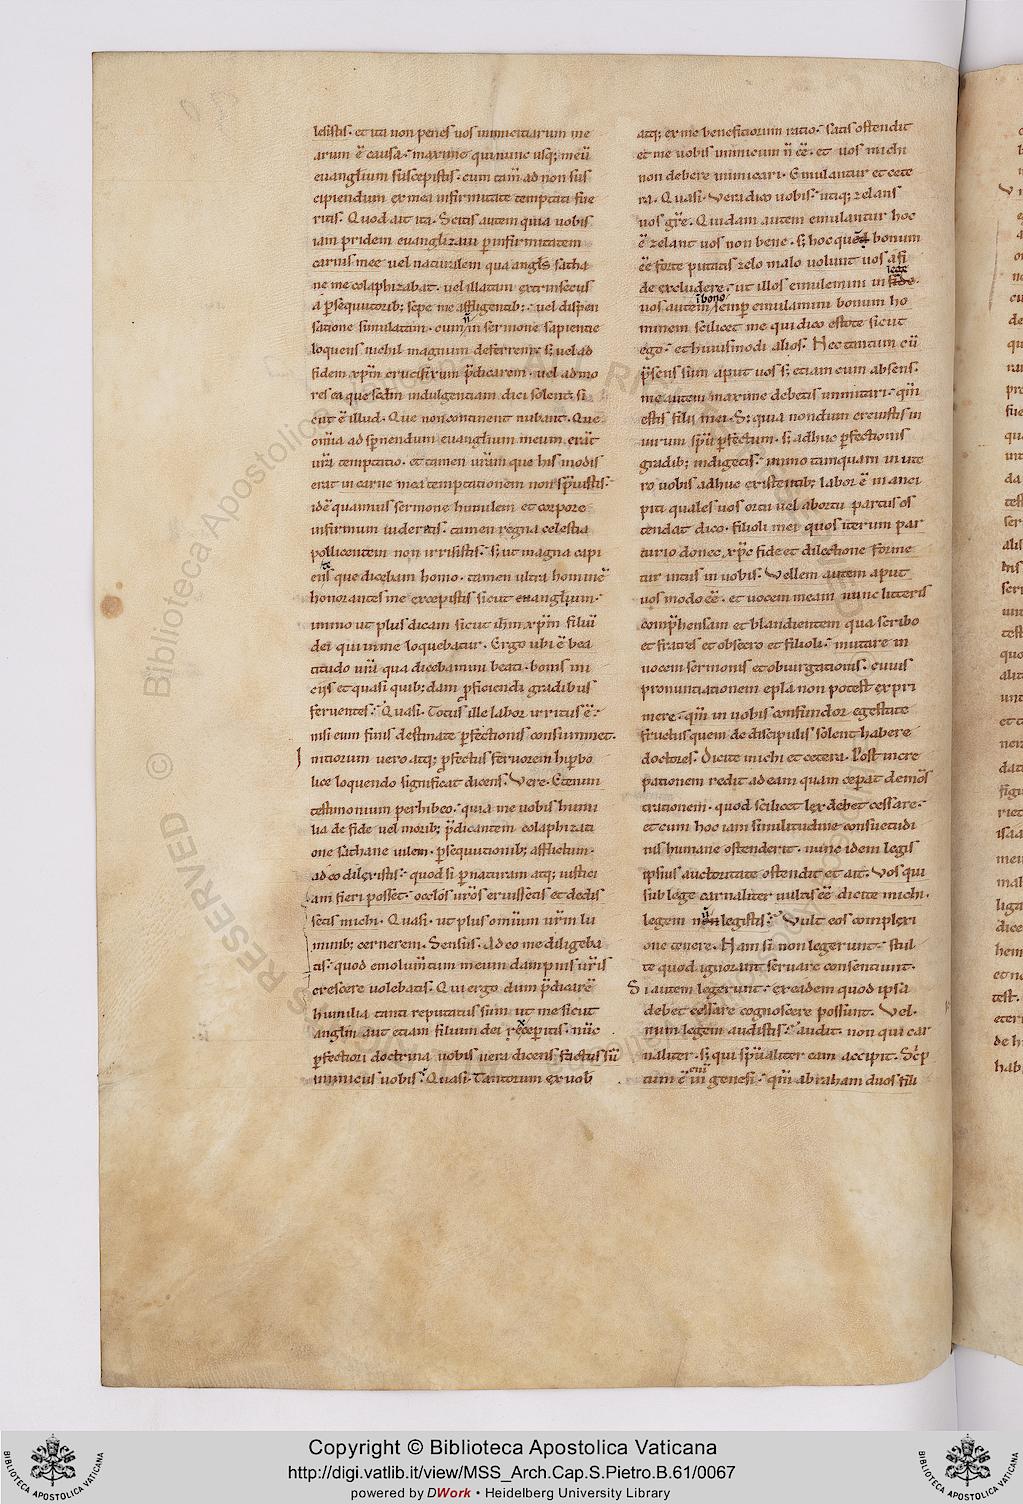 lesistis. et ita non penes uos inimicitiarum me
arum ē causa. maxime qui nunc usq; meū
euanglium suscepistis. cum tam̄ ad non sus
cipiendum ex mea infirmitate temptati fue
ritis. Quod ait ita. Scitis autem quia uobis
iam pridem euanglizaui p infirmitatem
carnis mee uel naturalem qua angls satha
ne me colaphizabat. uel illatam extrinsecus
a psequutorib; sepe me affligentib;. uel dispen
satione simulatam. cum n̄ in sermone sapientie
loquens nichil magnum deferrem. s; uel ad
fidem xpm̄ crucifixum p̄dicarem. uel ad mo
res ea que scdm̄ indulgentiam dici solent. si
cut ē illud. Que non continent nubant. Que
omīa ad spnendum euanglium meum. erāt
ur̄a temptatio. et tamen ur̄am que his modis
erat in carne mea temptationem non spuistis.
idē quamuis sermone humilem et corpore
infirmum uideretis. tamen regna celestia
pollicentem non irrisistis. s; ut magna capi
entes que dicebam homo. tamen ultra hominē
honorantes me excepistis sicut euanglium.
immo ut plus dicam sicut ihm xpm̄ filiū
dei qui in me loquebatur. Ergo ubi ē bea
titudo ur̄a qua dicebamini beati. bonis ini
ciis et quasi quib;dam pficiendi gradibus
feruentes. Quasi. Totus ille labor irritus ē.
nisi eum finis destinate pfectionis consummet.
Initiorum uero atq; pfectus feruorem hipbo
lice loquendo significat dicens. Vere. Etenim
testimonium perhibeo. quia me uobis humi
lia de fide uel morib; p̄dicantem colaphizati
one sathane uilem. psequutionib; afflictum.
adeo dilexistis. quod si p naturam atq; iustici
am fieri posset. oclos ur̄os eruissetis et dedis
setis michi. Quasi. ut plus omium ur̄m lu
minib; cernerem. Sensus. Adeo me diligeba
tis. quod emolumtum meum dampnis ur̄is
crescere uolebatis. Qui ergo dum p̄dicarē
humilia tanti reputatus sum ut me sicut
anglm aut etiam filium dei exceperitis. nūc
pfectiori doctrina uobis uera dicens factus sū
inimicus uobis. Quasi. Tantorum ex uob
atq; ex me beneficiorum ratio. satis ostendit
et me uobis inimicum n̄ ēē. et uos michi
non debere inimicari. Emulantur et cete
ra. Quasi. Vera dico uobis. utiq; zelans
uos gr̄e. Quidam autem emulantur hoc
ē zelant uos non bene. s; hoc quod bonum
ēē forte putatis zelo malo uolunt uos a fi
de excludere. ut illos emulemini in lege
uos autem in bono semp emulamini bonum ho
minem scilicet me qui dico estote sicut
ego. et huiusmodi alios. Nec tantum cū
p̄sens sum aput uos s; etiam cum absens.
me autem maxime debetis immitari. qm̄
estis filii mei. S; quia nondum creuistis in
uirum spū pfectum. s; adhuc pfectionis
gradib; indigetis. immo tamquam in ute
ro uobis adhuc existentib; labor ē in anci
piti quales uos ortu uel abortu partus os
tendat dico. filioli mei quos iterum par
turio donec xpc fide et dilectione forme
tur intus in uobis. Vellem autem aput
uos modo ēē. et uocem meam nunc litteris
comp̄hensam et blandientem qua scribo
et fratres et obsecro et filioli. mutare in
uocem sermonis et obiurgationis. cuius
pronuntiationem epla non potest expri
mere. qm̄ in uobis confundor egestate
fructus quem de discipulis solent habere
doctores. Dicite michi et cetera. Post incre
pationem redit ad eam quam ceperat demōs
trationem. quod scilicet lex debet cessare.
et cum hoc iam similitudine consuetudi
nis humane ostenderit. nunc idem legis
ipsius auctoritate ostendit et ait. Vos qui
sub lege carnaliter uultis ēē dicite michi.
legem n̄ legistis. Vult eos complexi
one tenere. Nam si non legerunt. stul
te quod ignorant seruare consentiunt.
Si autem legerunt. ex eadem quod ipsa
debet cessare cognoscere possunt. Vel.
num legem audistis. audit. non qui car
naliter. s; qui spūaliter eam accipit. Scp̄
tum ē eni in genesi. qm̄ abraham duos fili
Copyright © Biblioteca Apostolica Vaticana
http://digi.vatlib.it/view/MSS_Arch.Cap.S.Pietro.B.61/0067
powered by DWork • Heidelberg University Library